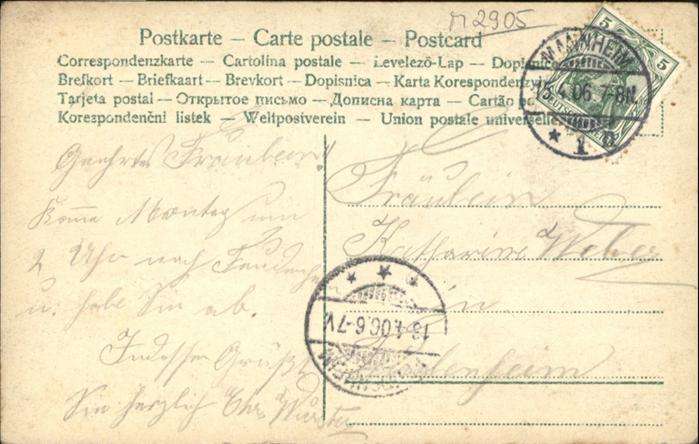 M 2905
Postkarte — Carte postale — Postcard
Correspondenzkarte — Cartolina postale — Levelező-Lap — Dopisnice
Brefkort — Briefkaart — Brevkort — Dopisnica — Karta Korespondenzy
Tarjeta postal — Открытое письмо — Дописна карта — Cartão
Korespondenční listek — Weltpostverein — Union postale universelle
5 5
MANNHEIM
15.4.06. 7-8N.
* 1
Geehrtes Fräulein!
Komme Montag um
2 Uhr nach
u. hole Sie ab.
Indessen Grüßt
Sie herzlich Chr. Wurster
Fräulein
Katharine Weber
in
06.6-7V